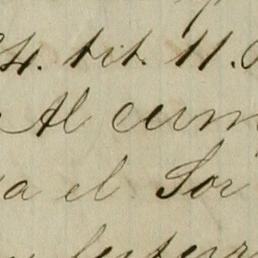 4. tit. 11.
Al cum
a el Sor